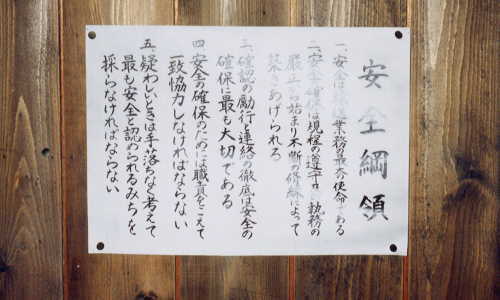 安全綱領
一、安全は業務の最大の使命である
二、安全確保は規程の遵守執務の
厳正始まり不断の修練によって
築きあげられる
三、確認の励行と連絡の徹底は安全の
確保に最も大切である
四、安全の確保のためには職責をこえて
一致協力しなければならない
五、疑わしいときは手落ちなく考えて
最も安全と認められるみちを
採らなければならない